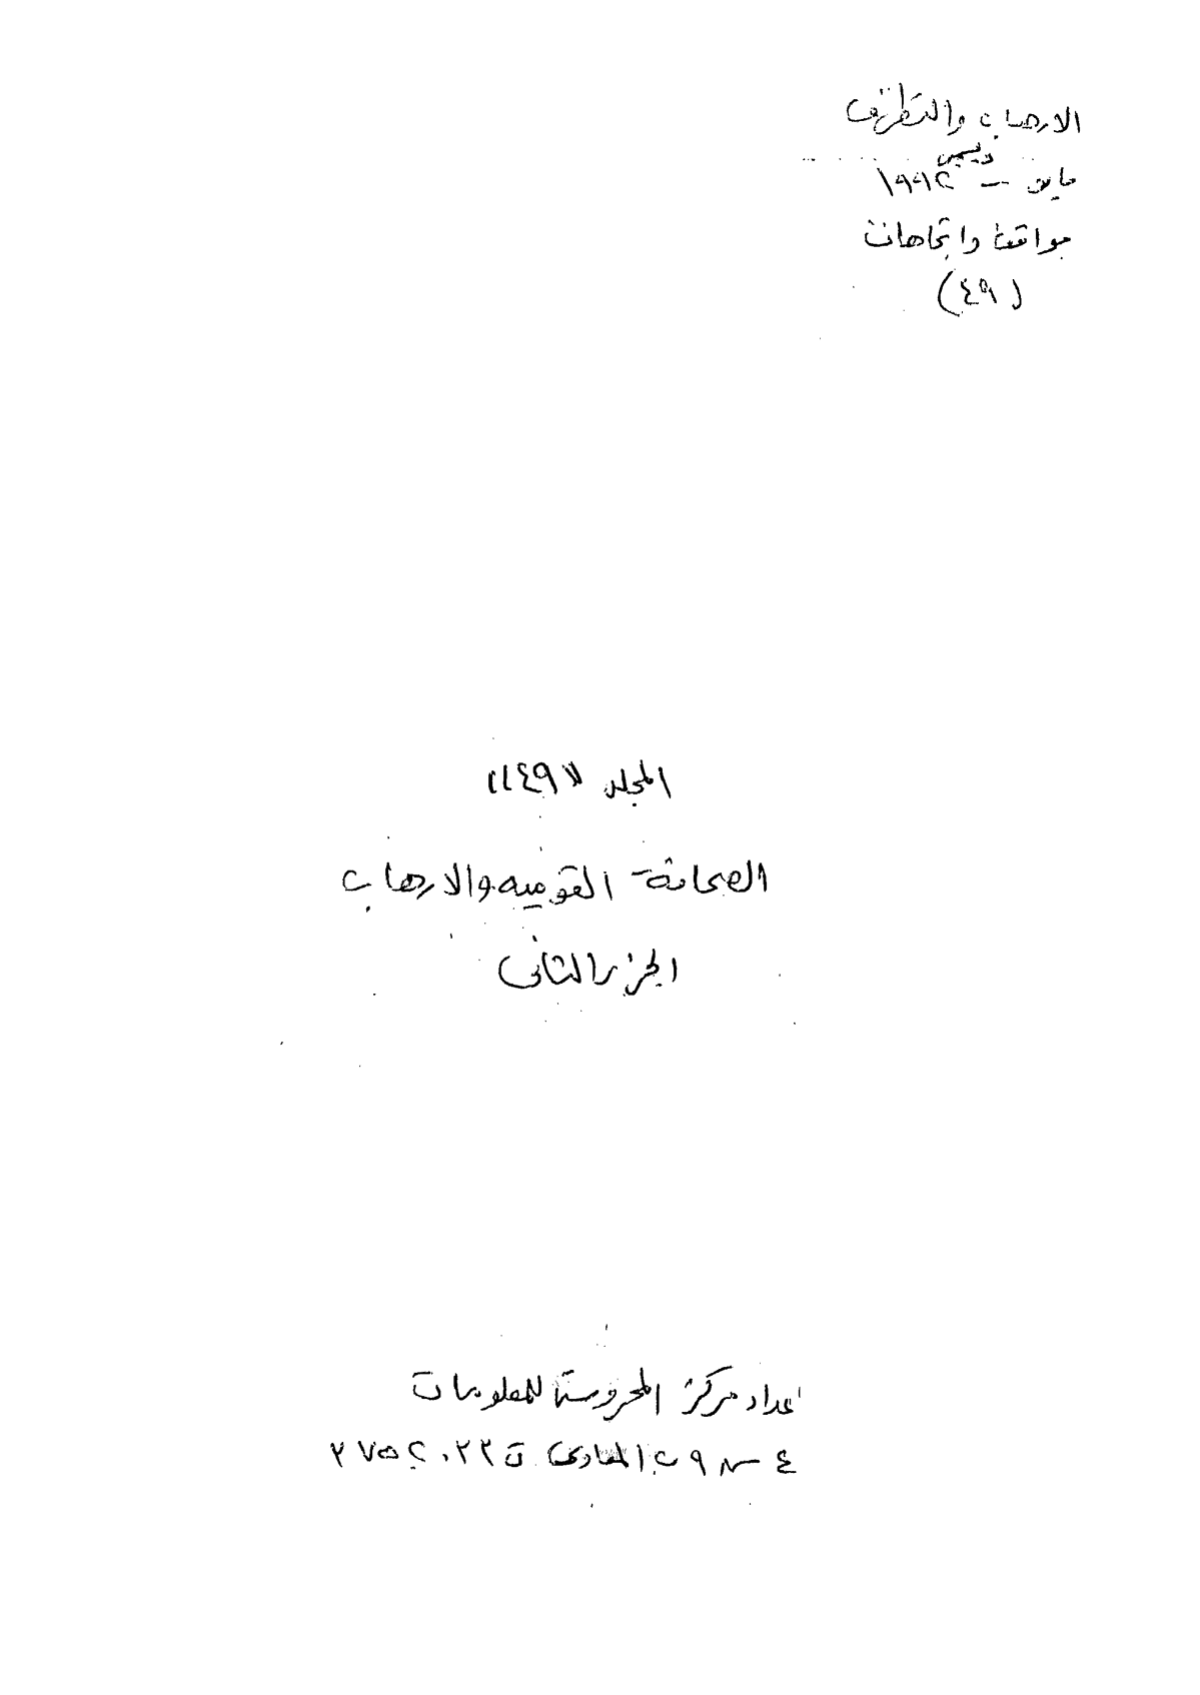 الارهاب والتطرف
ديسمبر
مايو — ١٩٩٢
مواقف واتجاهات
(٤٩)
المجلد "٤٩"
الصحافة القوميه والارهاب
الجزء الثانى
اعداد مركز المحروسة للمعلومات
٤ ش ٩ ب المعادى ت ٣٧٥٢٠٣٣